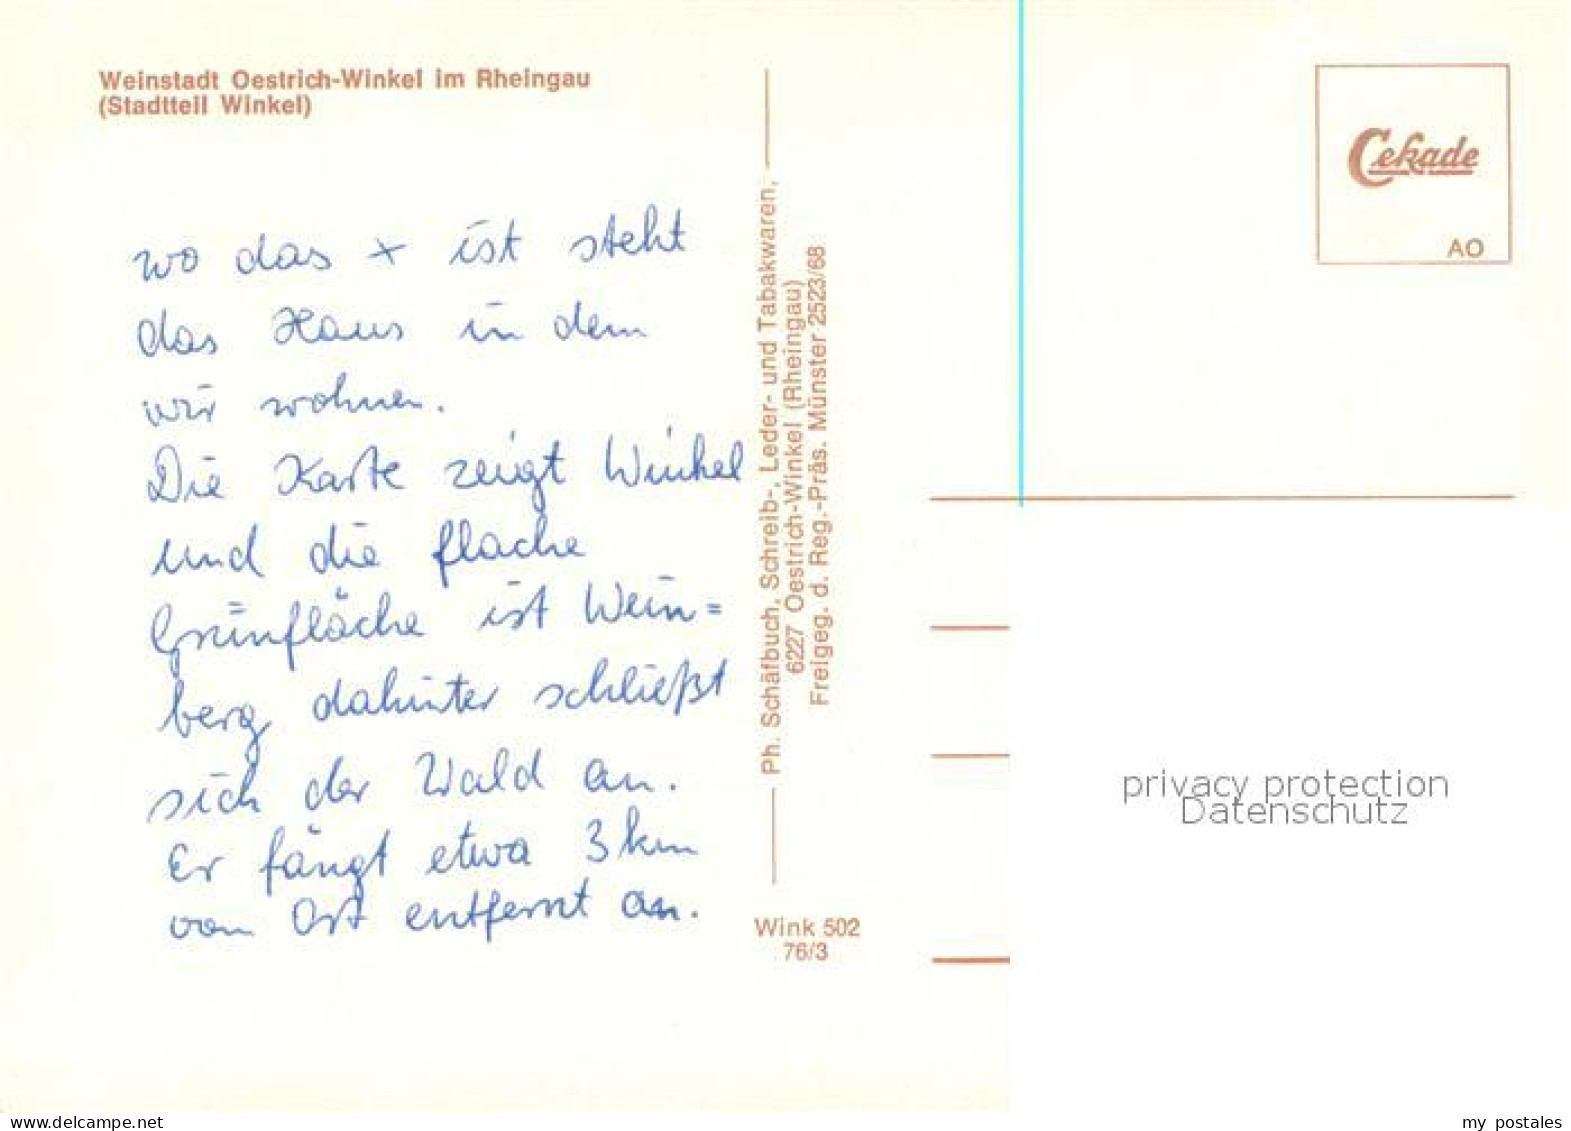 Weinstadt Oestrich-Winkel im Rheingau
(Stadtteil Winkel)
wo das + ist steht
das Haus in dem
wir wohnen.
Die Karte zeigt Winkel
und die flache
Grünfläche ist Wein=
berg dahinter schließt
sich der Wald an.
Er fängt etwa 3 km
vom Ort entfernt an.
Ph. Schäfbuch, Schreib-, Leder- und Tabakwaren,
6227 Oestrich-Winkel (Rheingau)
Freigeg. d. Reg.-Präs. Münster 2523/68
Wink 502
76/3
Cekade
AO
privacy protection
Datenschutz
www.delcampe.net
my_postales